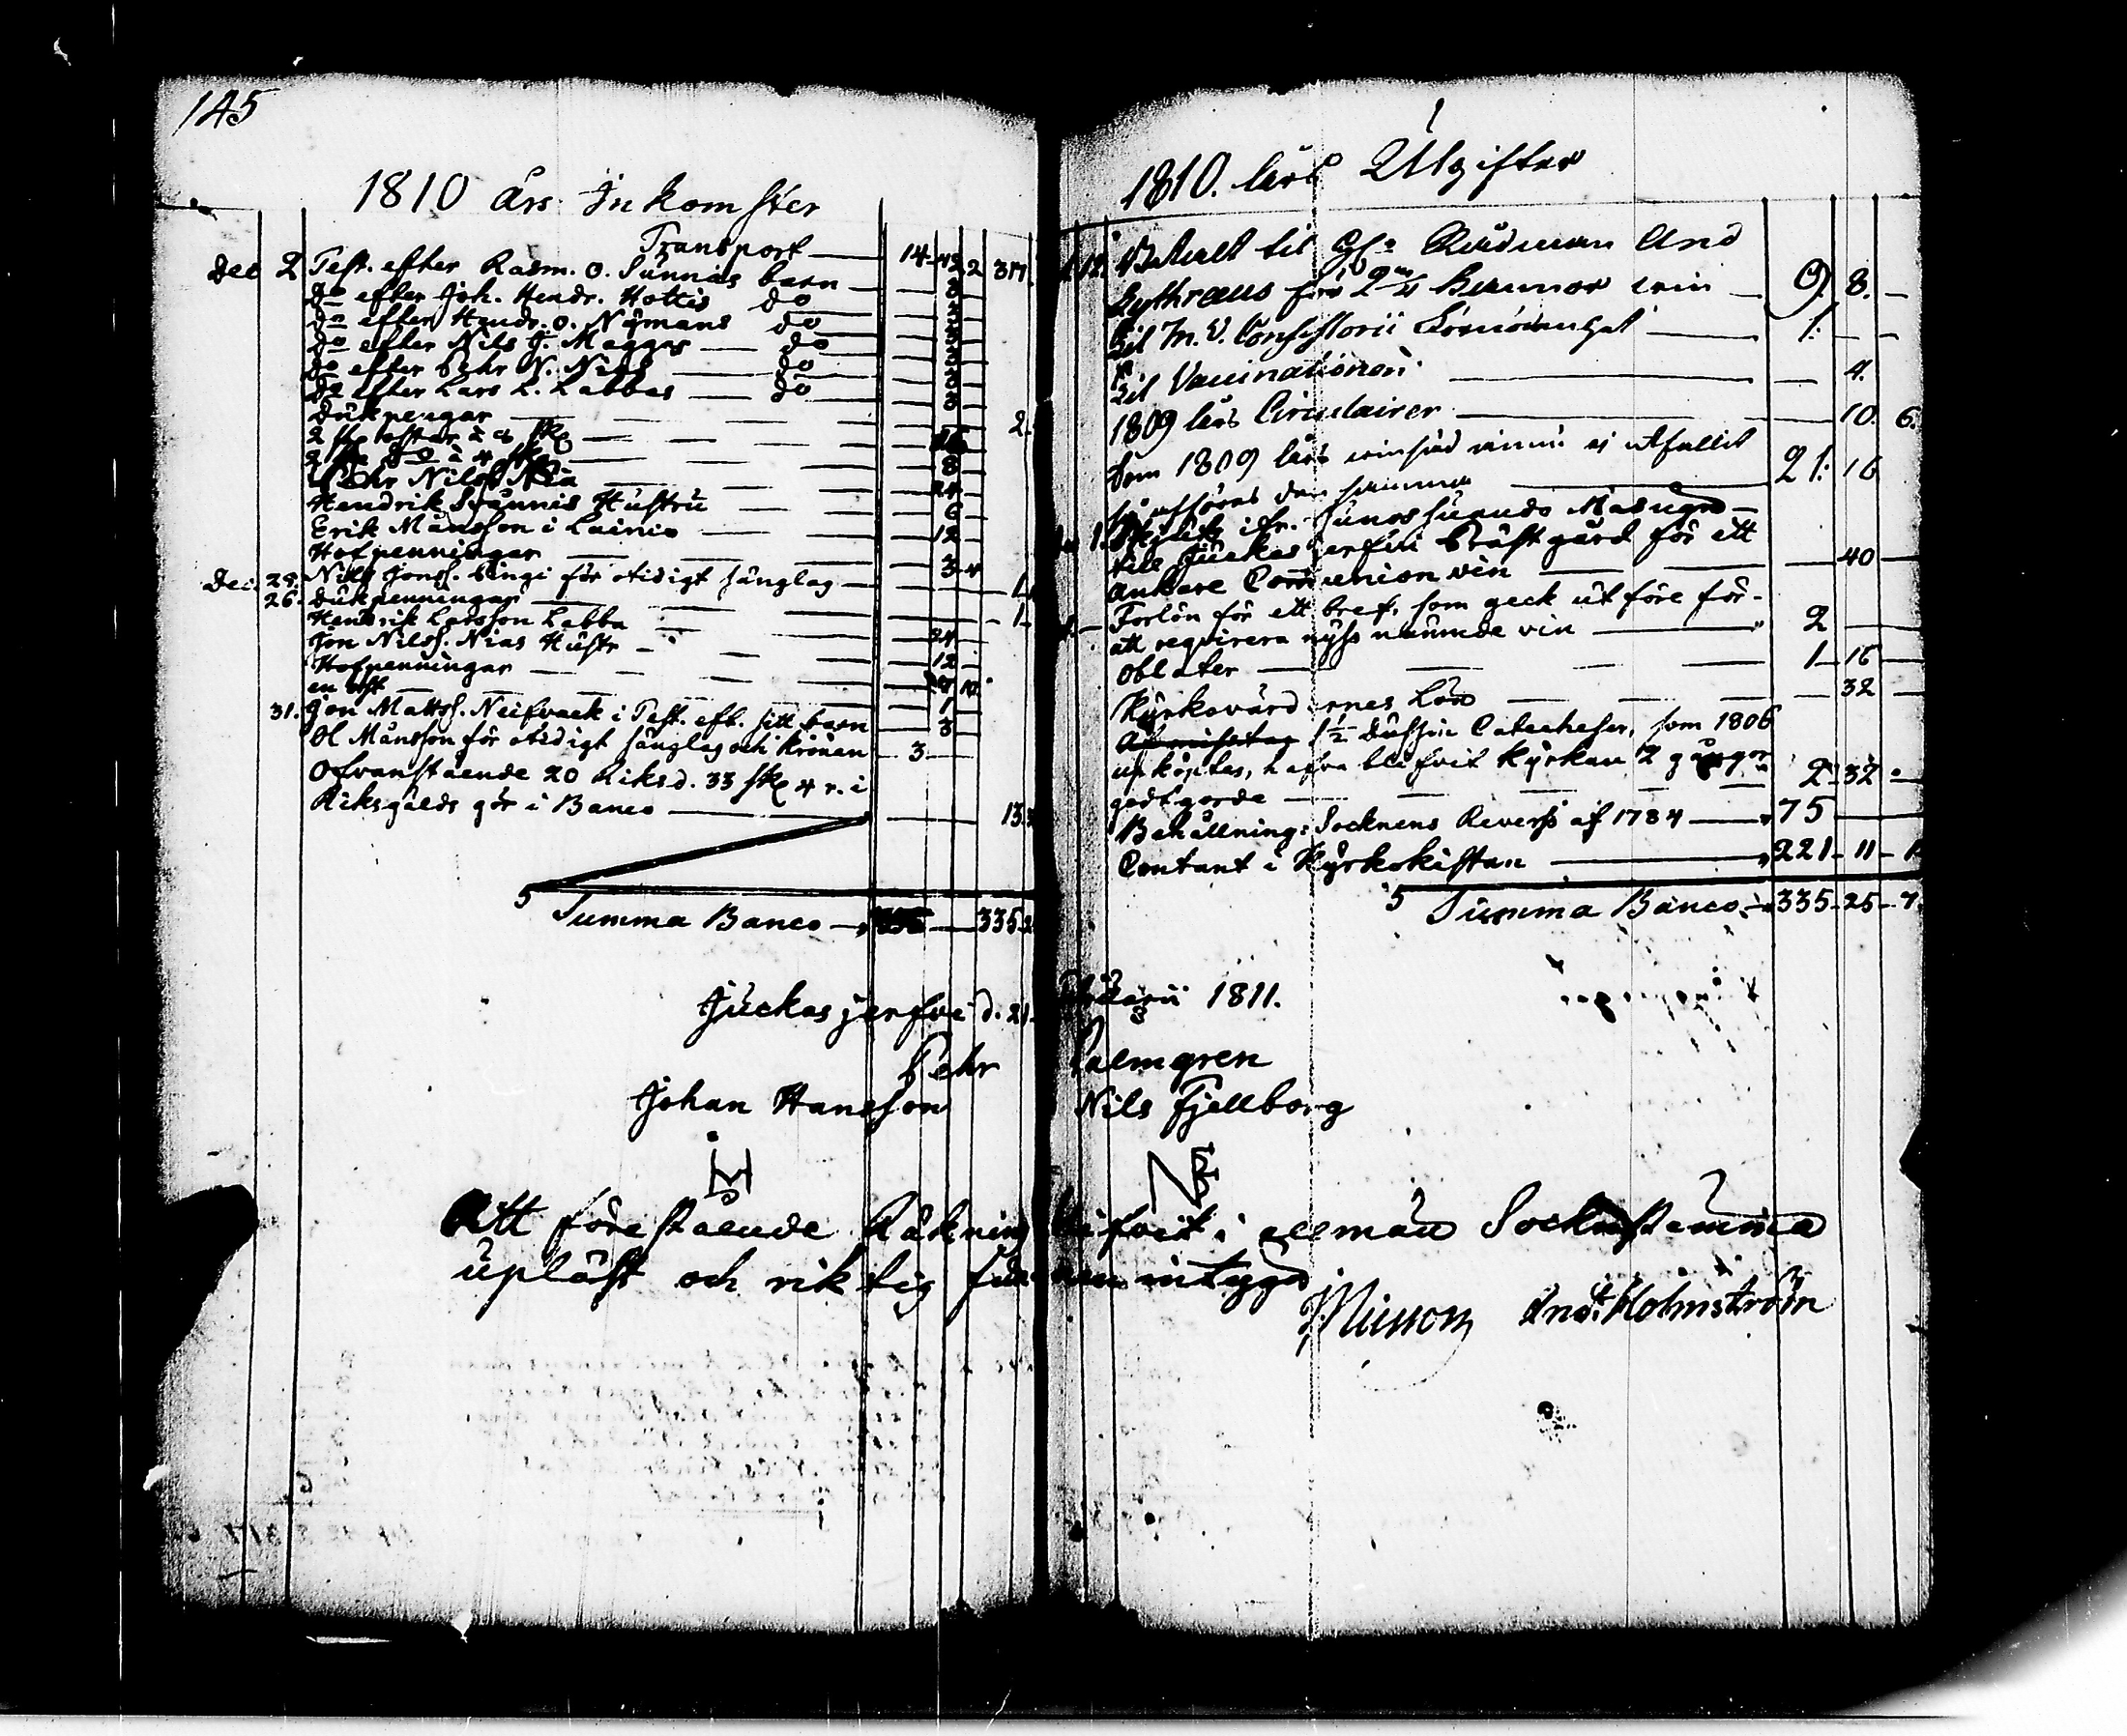 145
1810 års Inkomster
Transport — 14 42 2 317
Dec 2 Test. efter Rasm. O. Sunnas barn — 3
do efter Joh. Hendr. Hottis do — 3
do efter Hendr. O. Nymans do — 3
do efter Nils J. Magges — do — 3
do efter Pehr N. Nias — do — 3
do efter Lars L. Labbas — do — 3
Dukpengar — 2
2 st. ostar à
2 st. do à 4 sk. — 8
Pehr Nilss. Nia — 24
Hendrik Sunnis Hustru — 6
Erik Månsson i Lainio — 12
Hofpenningar — 3 4
Dec. 28. Nils Jonss. Pingi för otidigt sänglag — 1
26. Dukpenningar — 1
Hendrik Larsson Labba — 24
Jon Nilss. Nias Hustr — 12
Hofpenningar
en ost — 1
31. Jon Mattss. Neifvaek i Test. eft. sitt barn — 3
Ol Månsson för otidigt sänglag och Kronan — 3
Ofvanstående 20 Riksd. 33 sk 4 r. i
Riksgälds gör i Banco — 13
Summa Banco — 335
1810. års Utgifter
Betalt til Rådman And
Bythraeus för 2 Kannor win — 9. 8. —
Til M. V. Consistorii — 1: — —
Til Vaccinationen — 4.
1809 års Circulairer — 10. 6.
Som 1809 års ej utfallit
så afföres den samma — 21: 16
Skjuts ifr. Junossuando Masugn
till Juckasjerfvi Prästgård för ett
Ankare Communion vin — 40
Forlön för ett bref, som geck ut före för-
att requirera nyss nämnde vin — 2
Oblater — 1 16
Kyrkovärdarnes Lön — 32
1½ dussin Catecheser, som 1806
upköptes, hafva blifvit Kyrkan 2 gånger
godtgorde — 2 32
Behållning: Socknens Revers af 1784 — 75
Contant i Kyrkokistan — 221 11 1
Summa Banco — 335 25 7
Juckasjerfvi d. 21 Februarii 1811.
Pehr Palmgren
Johan Hansson Nils Fjellborg
Att förestående Räkning blifvit i allmän Sockenstämma
upläst och riktig funnen intyga
And. Holmström